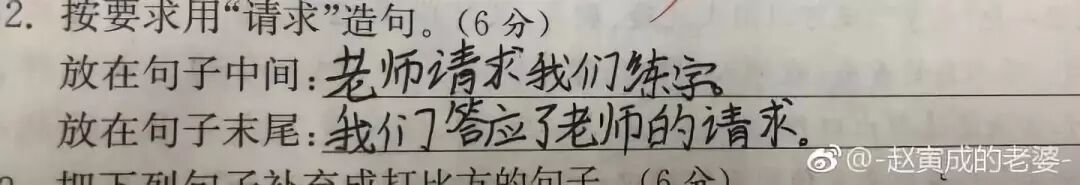 2. 按要求用“请求”造句。(6 分)
放在句子中间:老师请求我们练字。
放在句子末尾:我们答应了老师的请求。
@-赵寅成的老婆-
把下列句子补充成打比方的句子。(6 分)